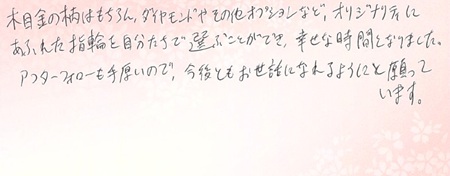 木目金の柄はもちろん、ダイヤモンドやその他オプションなど、オリジナリティに
あふれた指輪を自分たちで選ぶことができ、幸せな時間となりました。
アフターフォローも手厚いので、今後ともお世話になれるようにと願って
います。